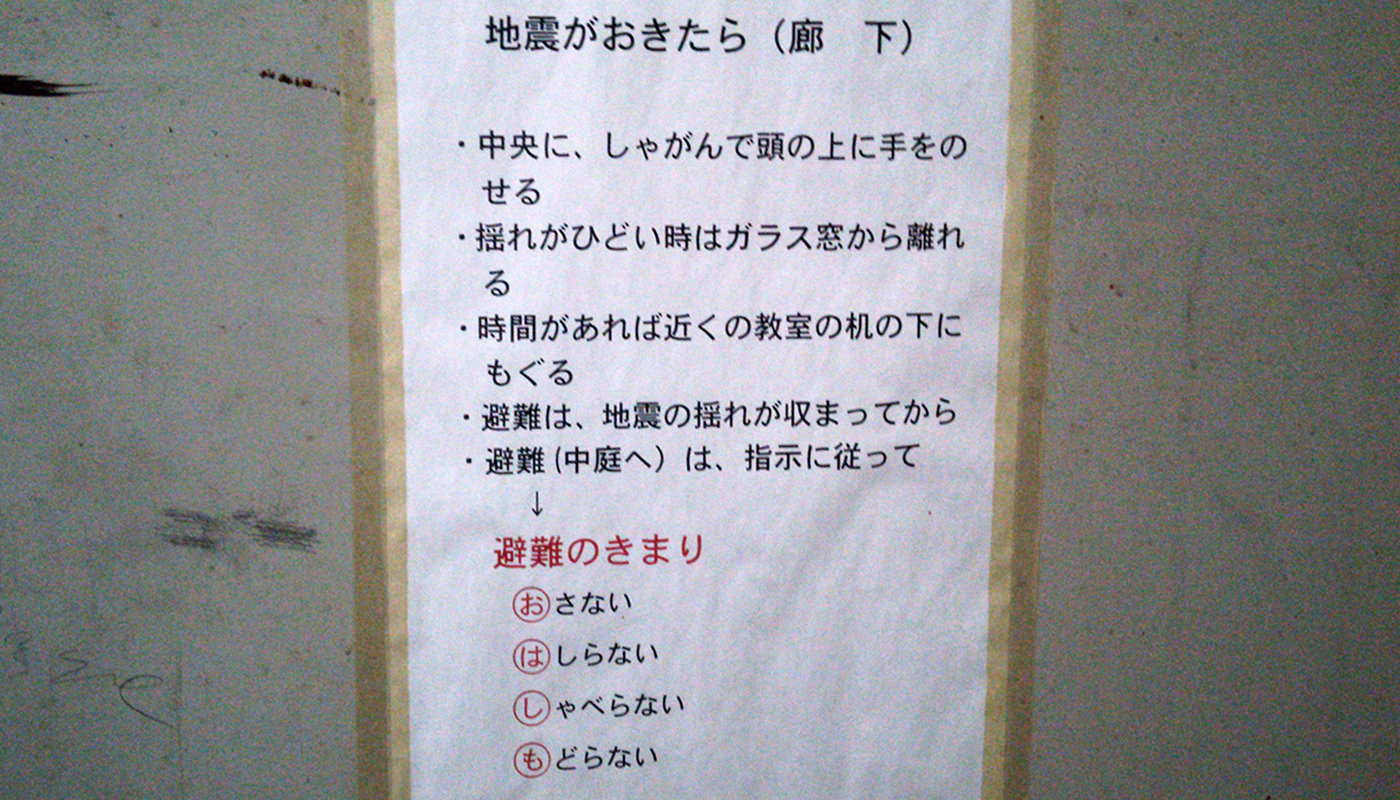 地震がおきたら（廊　下）
・中央に、しゃがんで頭の上に手をの
せる
・揺れがひどい時はガラス窓から離れ
る
・時間があれば近くの教室の机の下に
もぐる
・避難は、地震の揺れが収まってから
・避難(中庭へ）は、指示に従って
↓
避難のきまり
おさない
はしらない
しゃべらない
もどらない